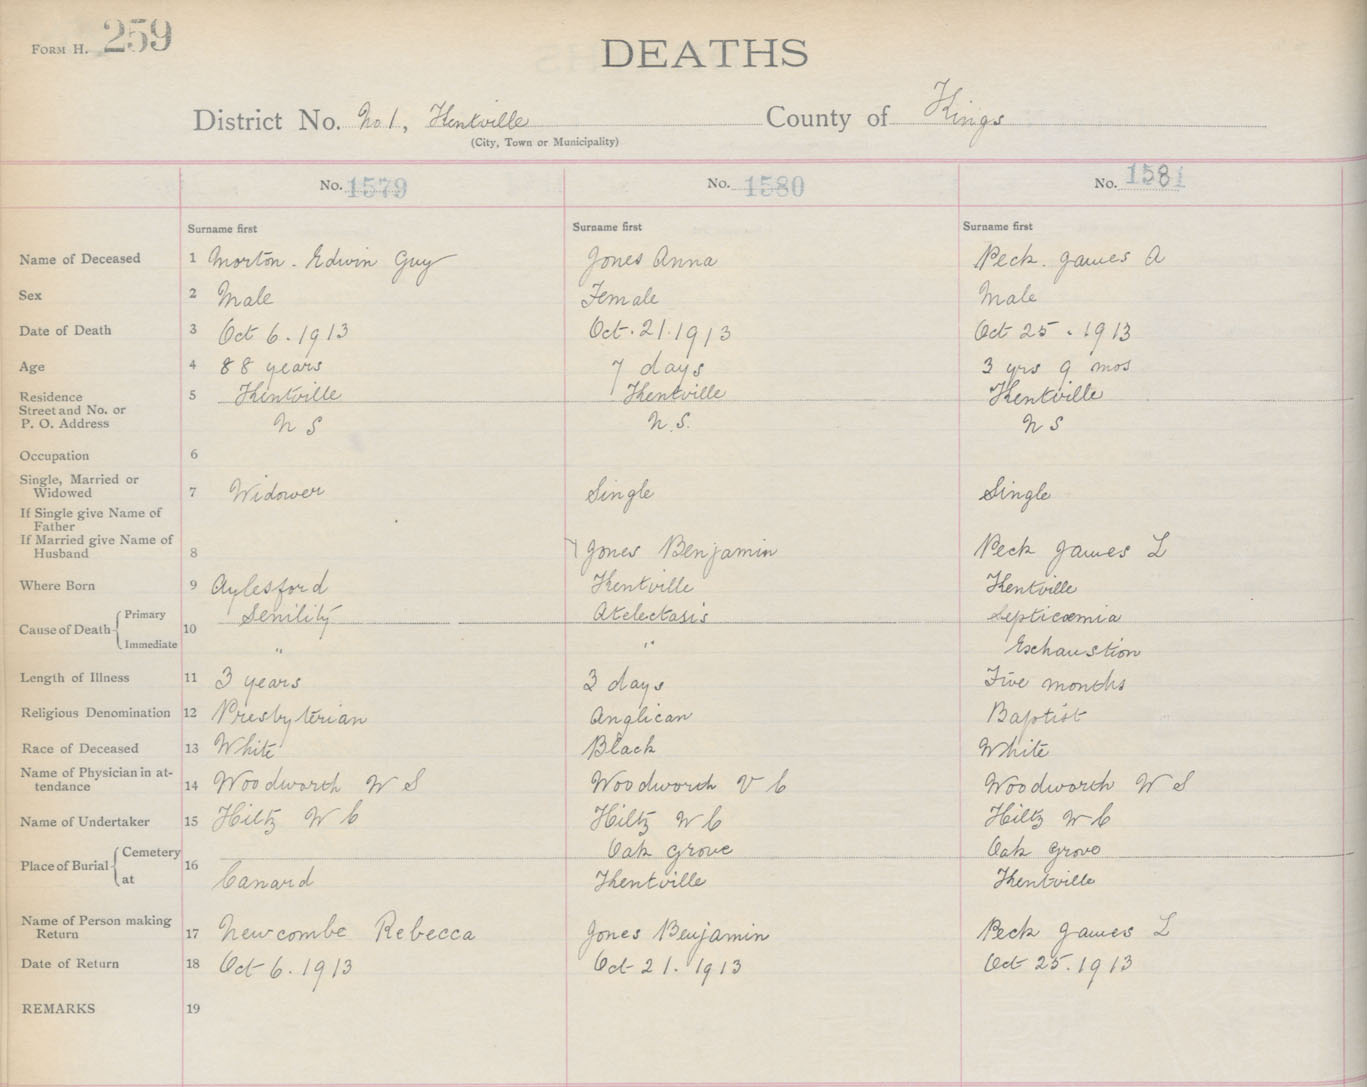 FORM H. 259
DEATHS
District No. No 1, Kentville County of Kings
(City, Town or Municipality)
No. 1579 No. 1580 No. 1581
Surname first Surname first Surname first
Name of Deceased 1 Morton. Edwin Guy Jones Anna Peck. James A
Sex 2 Male Female Male
Date of Death 3 Oct 6. 1913 Oct. 21. 1913 Oct 25. 1913
Age 4 88 years 7 days 3 yrs 9 mos
Residence 5 Kentville Kentville Kentville
Street and No. or
P. O. Address N S N. S. N S
Occupation 6
Single, Married or
Widowed 7 Widower Single Single
If Single give Name of
Father
If Married give Name of
Husband 8 Jones Benjamin Peck James L
Where Born 9 Aylesford Kentville Kentville
Cause of Death 10 Primary Senility Atelectasis Septicæmia
Immediate " " Exhaustion
Length of Illness 11 3 years 3 days Five months
Religious Denomination 12 Presbyterian Anglican Baptist
Race of Deceased 13 White Black White
Name of Physician in at-
tendance 14 Woodworth W S Woodworth V C Woodworth W S
Name of Undertaker 15 Hiltz W C Hiltz W C Hiltz W C
Place of Burial 16 Cemetery Oak Grove Oak Grove
at Canard Kentville Kentville
Name of Person making
Return 17 Newcombe Rebecca Jones Benjamin Peck James L
Date of Return 18 Oct 6. 1913 Oct 21. 1913 Oct 25. 1913
REMARKS 19